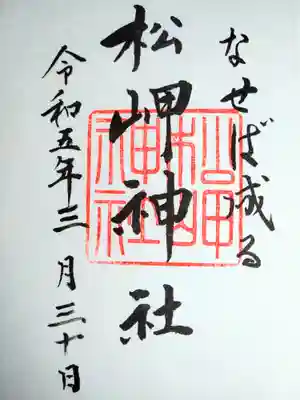 なせば成る
松岬神社
松岬神社
令和五年三月三十日